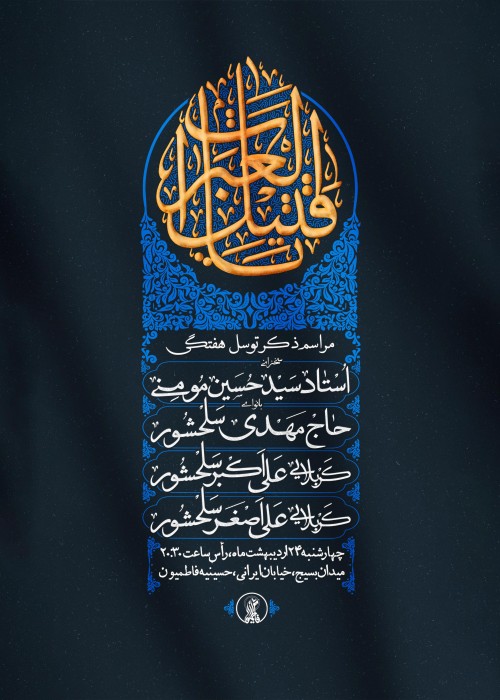 یا قتیل العبرات
مراسم ذکر توسل هفتگی
سخنرانی
اُستاد سَید حُسین مومنی
بانوای
حاج مَهدی سَلحشور
کربلایی عَلی اَکبر سَلحشور
کربلایی عَلی اَصغر سَلحشور
چهارشنبه ۲۴ اردیبهشت ماه، رأس ساعت ۲۰:۳۰
میدان بسیج، خیابان ایرانی، حسینیه فاطمیون